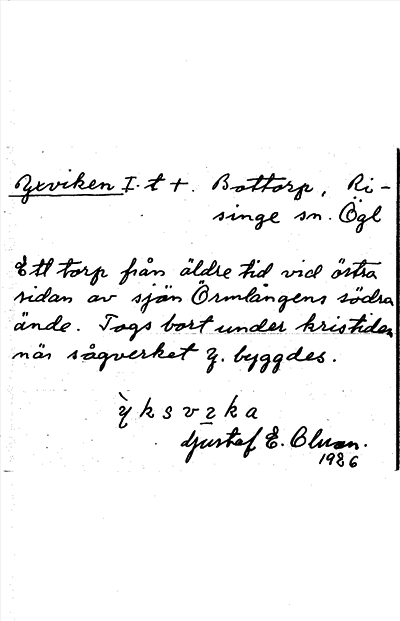 Yxviken I. t +. Bottorp, Ri-
singe sn. Ögl
Ett torp från äldre tid vid östra
sidan av sjön Örmlångens södra
ände. Togs bort under kristiden
när sågverket Y. byggdes.
ỳksvika
Gustaf E. Olsson.
1926